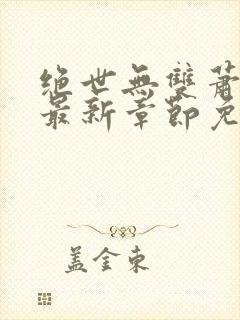 绝世無雙蕭
最新章節免
蓋金東